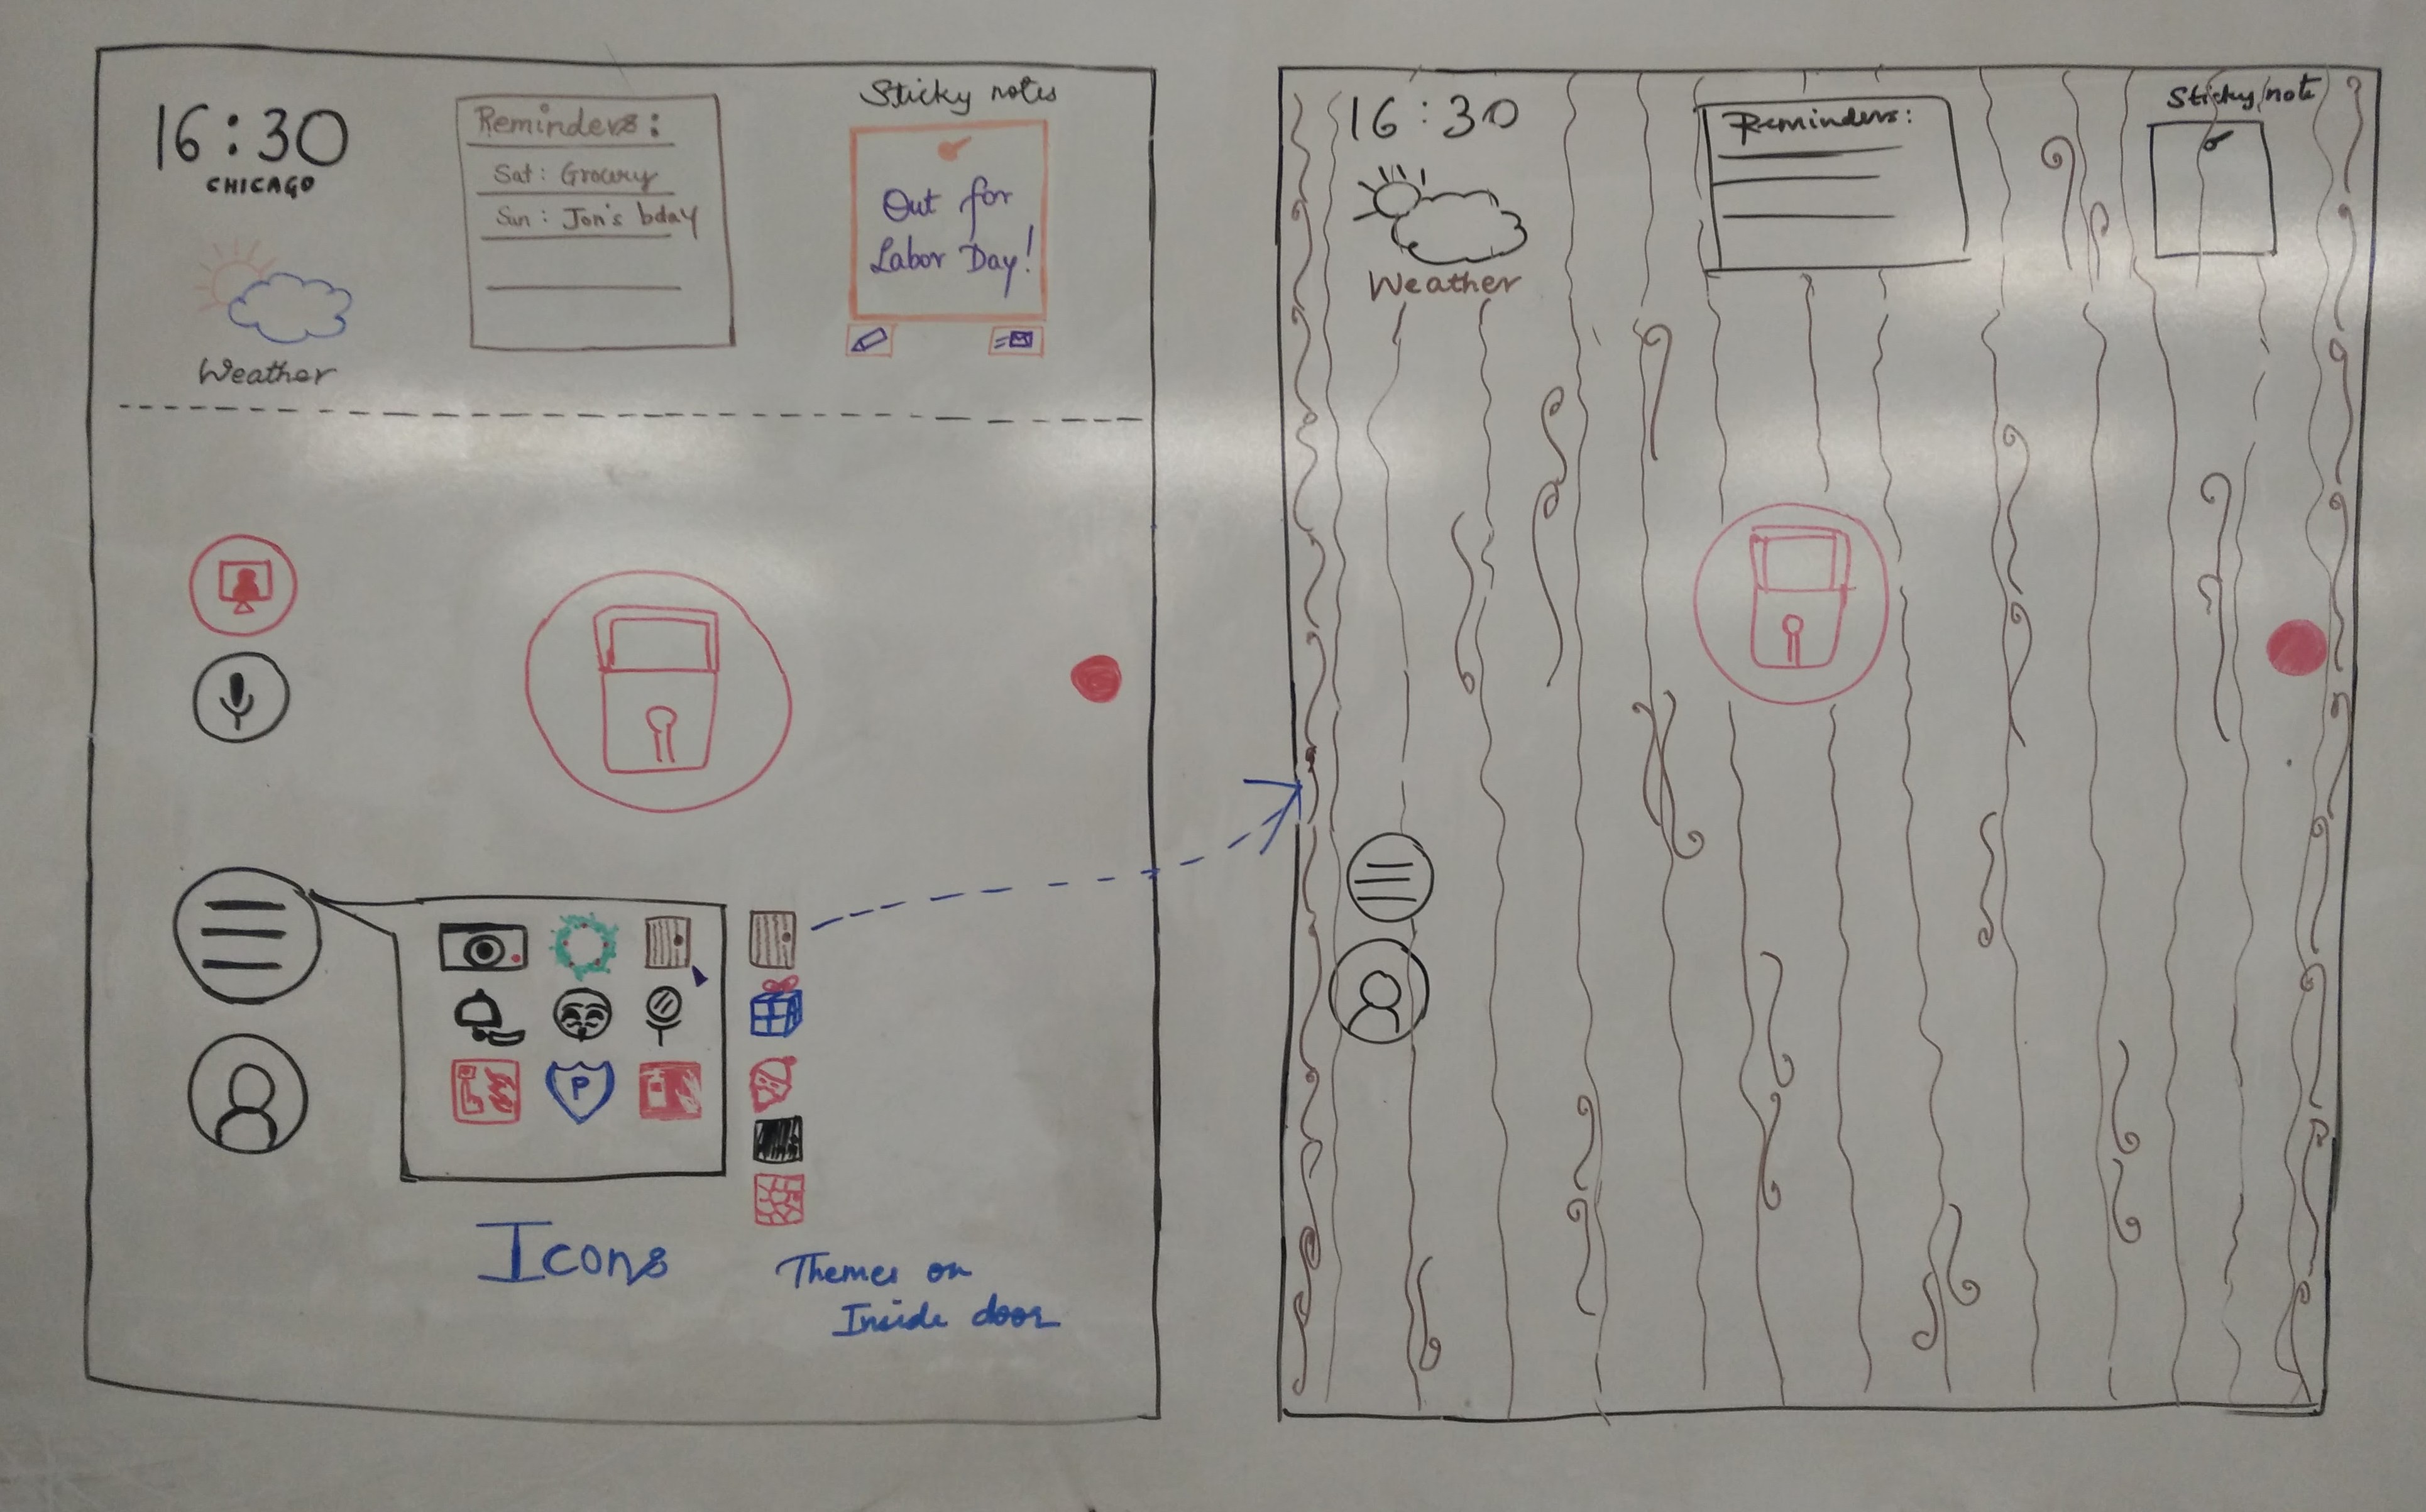 16:30
CHICAGO
Weather
Reminders:
Sat: Grocery
Sun: Jon's bday
Sticky notes
Out for
Labor Day!
P
Icons
Themes on
Inside door
16:30
Weather
Reminders:
Sticky note